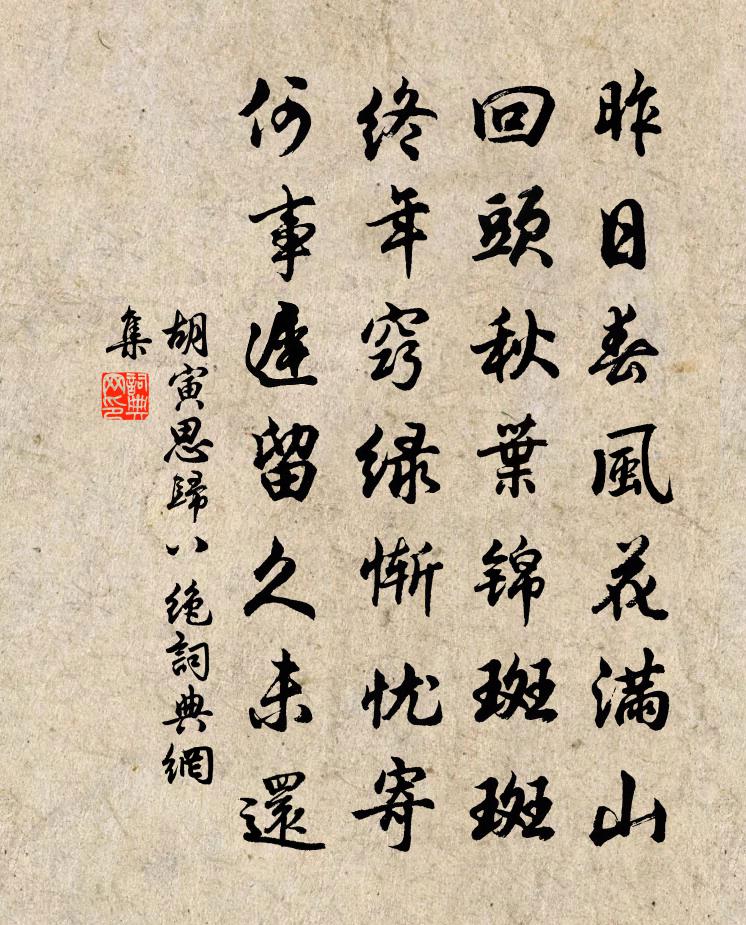 昨日春風花滿山
回頭秋葉锦斑斑
終年窈緑惭忧寄
何事遲留久未還
胡寅思歸八絶詞典網
集
詞典网印